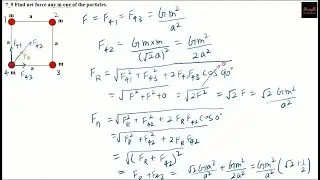 7_9 Find net force any in one of the particles.
1 m a 2 m
a a
F₄₁ F₄₂
F_R
4 m F₄₃ a m 3
F = F₄₁ = F₄₃ = Gm²/a²
F₄₂ = Gm×m/(√2a)² = Gm²/2a²
F_R = √F₄₁² + F₄₃² + 2F₄₁F₄₃ cos 90° 0
= √F² + F² + 0 = √2F² = √2 F = √2 Gm²/a²
F_n = √F_R² + F₄₂² + 2F_R F₄₂ cos 0°
= √F_R² + F₄₂² + 2F_R F₄₂
= √(F_R + F₄₂)²
= F_R + F₄₂ = √2Gm²/a² + Gm²/2a² = Gm²/a² (√2 + 1/2)